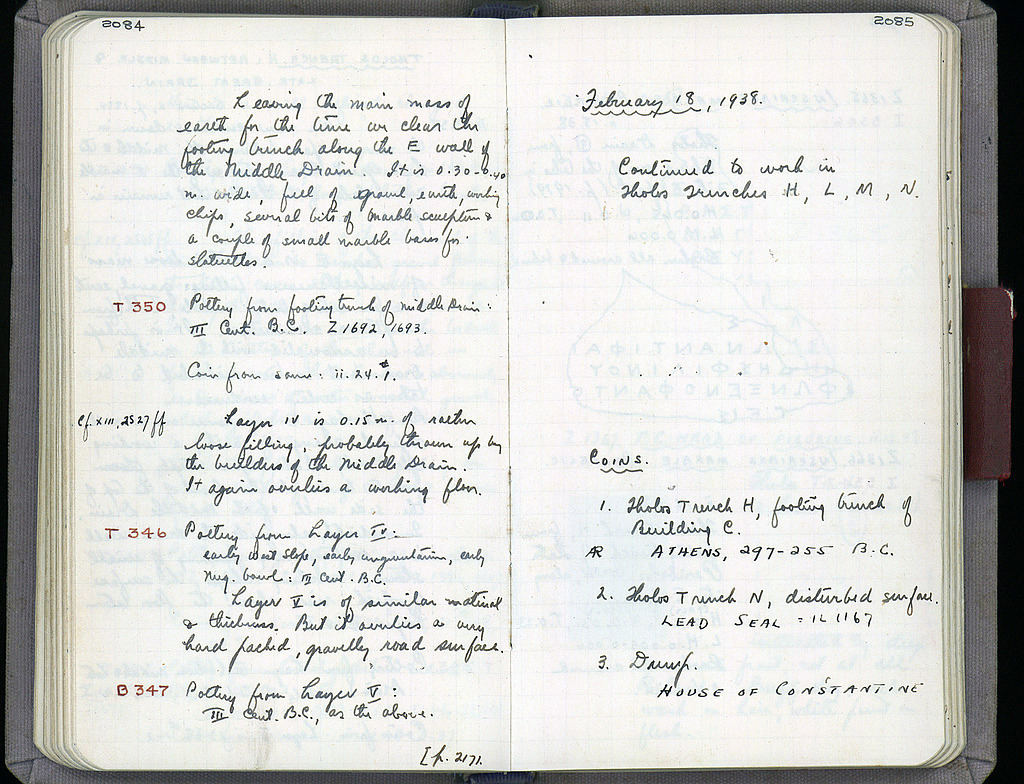 2084
Leaving the main mass of
earth for the time we clear the
footing trench along the E wall of
the Middle Drain. It is 0.30-0.40
m. wide, full of gravel, earth, working
chips, several bits of marble sculpture &
a couple of small marble bases for
statuettes.
T 350 Pottery from footing trench of Middle Drain:
III Cent. B.C. Z 1692, 1693.
Coin from same: ii. 24. #1.
Cf. XIII, 2527 ff Layer IV is 0.15 m. of rather
loose filling, probably thrown up by
the builders of the Middle Drain.
It again overlies a working floor.
T 346 Pottery from Layer IV:
early west slope, early unguentarium, early
Meg. bowl: III Cent. B.C.
Layer V is of similar material
& thickness. But it overlies a very
hard packed, gravelly road surface.
B 347 Pottery from Layer V:
III Cent. B.C., as the above.
[p. 2171.
2085
February 18, 1938.
Continued to work in
Tholos Trenches H, L, M, N.
COINS.
1. Tholos Trench H, footing trench of
Building C.
AR ATHENS, 297-255 B.C.
2. Tholos Trench N, disturbed surface.
LEAD SEAL = IL 1167
3. Dump.
HOUSE OF CONSTANTINE